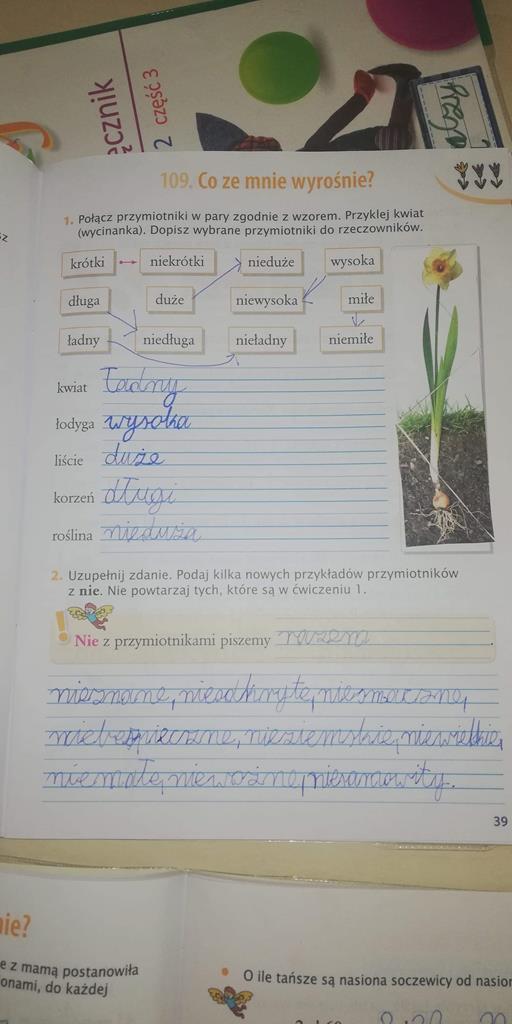 ęcznik
2 część 3
109. Co ze mnie wyrośnie?
1. Połącz przymiotniki w pary zgodnie z wzorem. Przyklej kwiat
(wycinanka). Dopisz wybrane przymiotniki do rzeczowników.
krótki niekrótki nieduże wysoka
długa duże niewysoka miłe
ładny niedługa nieładny niemiłe
kwiat ładny
łodyga wysoka
liście duże
korzeń długi
roślina nieduża
2. Uzupełnij zdanie. Podaj kilka nowych przykładów przymiotników
z nie. Nie powtarzaj tych, które są w ćwiczeniu 1.
! Nie z przymiotnikami piszemy razem.
nieznane, nieodkryte, niesmaczne,
niebezpieczne, nieziemskie, niewielkie,
niemałe, nieważne, niesamowity.
39
nie?
e z mamą postanowiła
onami, do każdej
• O ile tańsze są nasiona soczewicy od nasion